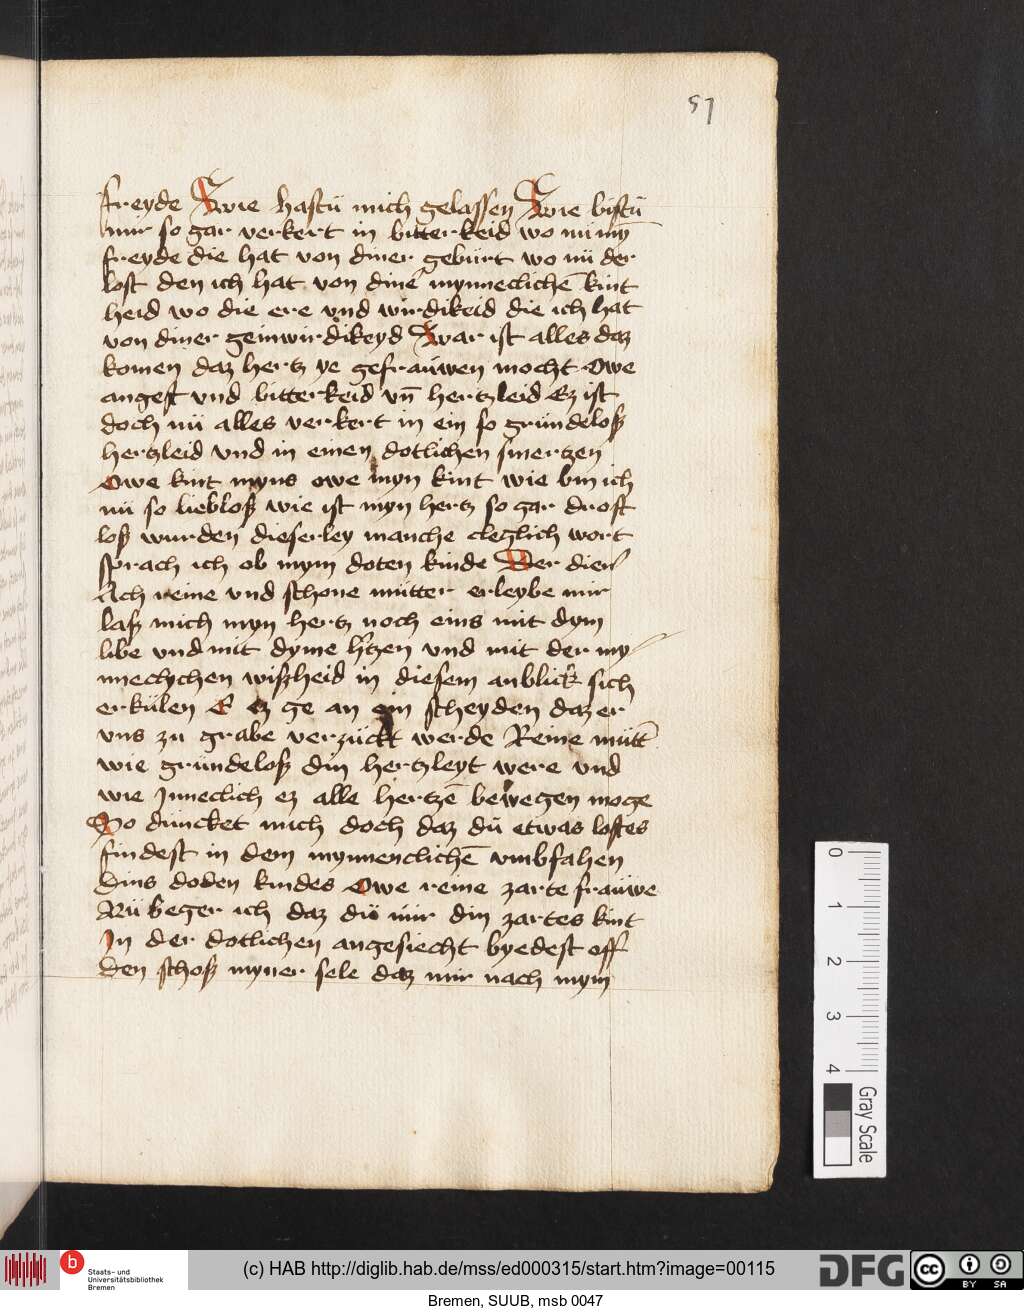 57
freyde Wie hastü mich gelassen Wie bistü
mir so gar verkert in bitterkeid wo nü mȳ
freyde die hat von diner gebürt wo nü der
lost den ich hat von dinē mynneclichē kint
heid wo die ere vnd wirdikeid die ich hat
von diner geinwirdikeyd War ist alles daz
komen daz hertz ye gefrauwen mocht Owe
angest vnd bitterkeid vn̄ hertzleid Ez ist
doch nü alles verkert in ein so gründeloß
hertzleid vnd in einen dotlichen smertzen
Owe kint myns owe myn kint wie bin ich
nü so liebloß wie ist myn hertz so gar drost
loß wurden dieserley manche cleglich wort
sprach ich ob mym doten kinde Der dien
Ach reine vnd schone mütter erleybe mir
laß mich myn hertz noch eins mit dym
libe vnd mit dyme htzen vnd mit der my
nneclychen wißheid in diesem anblick sich
erkülen E ez ge an ein scheyden daz er
vns zu grabe verzückt werde Reine mütt
wie gründeloß din hertzleyt were vnd
wie Inneclich ez alle hertzē bewegen moge
So düncket mich doch daz dü etwas lostes
findest in dem mynnenclichē vmbfahen
Dins doden kindes Owe reine zarte frauwe
Nü beger ich daz dü mir din zartes kint
In der dotlichen angesiecht byedest off
den schoß myner sele daz mir nach mym
0
1
2
3
4
Gray Scale
b Staats- und
Universitätsbibliothek
Bremen
(c) HAB http://diglib.hab.de/mss/ed000315/start.htm?image=00115
DFG
cc BY SA
Bremen, SUUB, msb 0047